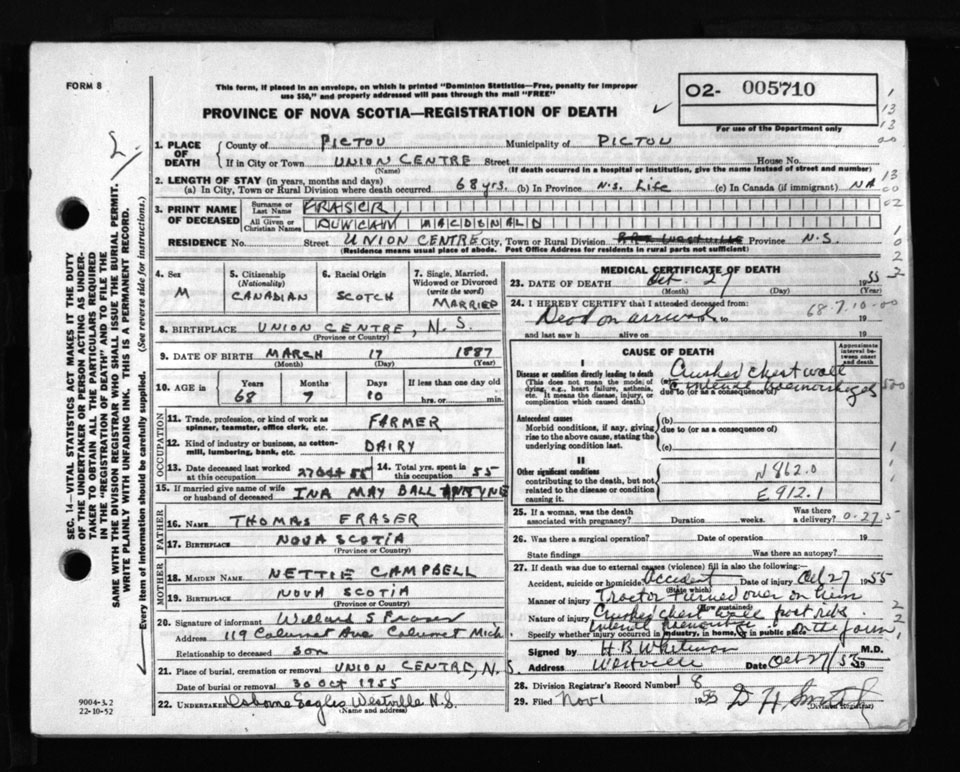 FORM 8
This form, if placed in an envelope, on which is printed "Dominion Statistics—Free, penalty for improper
use $50," and properly addressed will pass through the mail "FREE"
PROVINCE OF NOVA SCOTIA—REGISTRATION OF DEATH
02- 005710
For use of the Department only
1. PLACE OF DEATH
County of PICTOU Municipality of PICTOU
If in City or Town UNION CENTRE Street House No.
(Name) (If death occurred in a hospital or institution, give the name instead of street and number)
2. LENGTH OF STAY (in years, months and days)
(a) In City, Town or Rural Division where death occurred 68 yrs. (b) In Province N.S. Life (c) In Canada (if immigrant) NA
3. PRINT NAME OF DECEASED
Surname or Last Name FRASER
All Given or Christian Names DUNCAN MACDONALD
RESIDENCE No. Street UNION CENTRE City, Town or Rural Division WESTVILLE Province N.S.
(Residence means usual place of abode. Post Office Address for residents in rural parts not sufficient)
4. Sex M
5. Citizenship (Nationality) CANADIAN
6. Racial Origin SCOTCH
7. Single, Married, Widowed or Divorced (write the word) MARRIED
8. BIRTHPLACE UNION CENTRE, N.S.
(Province or Country)
9. DATE OF BIRTH MARCH 17 1887
(Month) (Day) (Year)
10. AGE in Years Months Days If less than one day old
68 7 10 hrs. or min.
OCCUPATION
11. Trade, profession, or kind of work as spinner, teamster, office clerk, etc. FARMER
12. Kind of industry or business, as cotton-mill, lumbering, bank, etc. DAIRY
13. Date deceased last worked at this occupation 27 Oct 55 14. Total yrs. spent in this occupation 55
15. If married give name of wife or husband of deceased INA MAY BALLANTYNE
FATHER
16. NAME THOMAS FRASER
17. BIRTHPLACE NOVA SCOTIA
(Province or Country)
MOTHER
18. MAIDEN NAME NETTIE CAMPBELL
19. BIRTHPLACE NOVA SCOTIA
(Province or Country)
20. Signature of informant Willard S Fraser
Address 119 Calumet Ave Calumet Mich
Relationship to deceased son
21. Place of burial, cremation or removal UNION CENTRE, N.S.
Date of burial or removal 30 OCT 1955
22. UNDERTAKER Osborne Eagles Westville N.S.
(Name and address)
MEDICAL CERTIFICATE OF DEATH
23. DATE OF DEATH Oct 27 1955
(Month) (Day) (Year)
24. I HEREBY CERTIFY that I attended deceased from:
Dead on arrival to 19
68-7-10-00
and last saw h alive on 19
CAUSE OF DEATH
Approximate interval between onset and death
I
Disease or condition directly leading to death
(This does not mean the mode of dying, e.g., heart failure, asthenia, etc. It means the disease, injury, or complication which caused death.)
(a) Crushed chest wall
internal haemorrhages
due to (or as a consequence of)
Antecedent causes
Morbid conditions, if any, giving rise to the above cause, stating the underlying condition last.
(b)
due to (or as a consequence of)
(c)
II
Other significant conditions
contributing to the death, but not related to the disease or condition causing it.
N862.0
E912.1
25. If a woman, was the death associated with pregnancy? Duration weeks. Was there a delivery? 0-27-5
26. Was there a surgical operation? Date of operation 19
State findings Was there an autopsy?
27. If death was due to external causes (violence) fill in also the following:
Accident, suicide or homicide Accident Date of injury Oct 27 1955
(State which)
Manner of injury Tractor turned over on him
(How sustained)
Nature of injury Crushed chest wall ribs
Internal on the farm
Specify whether injury occurred in industry, in home, or in public place
Signed by H B Whitman M.D.
Address Westville Date Oct 27/55 19
28. Division Registrar's Record Number 18
29. Filed Nov 1 1955 D H Smith
(Division Registrar)
SEC. 14—VITAL STATISTICS ACT MAKES IT THE DUTY
OF THE UNDERTAKER OR PERSON ACTING AS UNDER-
TAKER TO OBTAIN ALL THE PARTICULARS REQUIRED
IN THE "REGISTRATION OF DEATH" AND TO FILE THE
SAME WITH THE DIVISION REGISTRAR WHO SHALL ISSUE THE BURIAL PERMIT.
WRITE PLAINLY WITH UNFADING INK. THIS IS A PERMANENT RECORD.
Every item of information should be carefully supplied. (See reverse side for instructions.)
9004-3.2
22-10-52